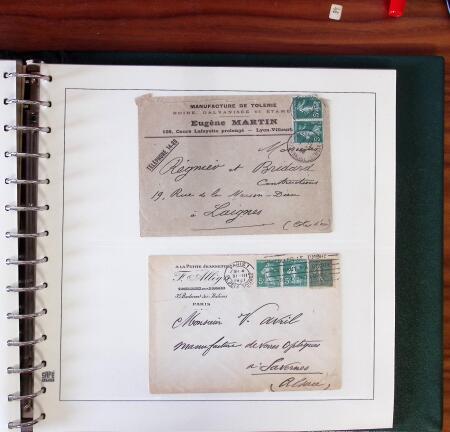 MANUFACTURE DE TOLERIE
NOIRE, GALVANISÉE ET ÉTAMÉE
Eugène MARTIN
128, Cours Lafayette prolongé - Lyon-Villeurb
TÉLÉPHONE 14-09
Régnier et Bridard
Constructions
19, Rue de la Maison-Dieu
à Laignes
A LA PETITE JEANNETTE
F. Allig
PARIS
Monsieur V. avril
manufacture de verres optiques
à Saverne
(Alsace)
SAFE